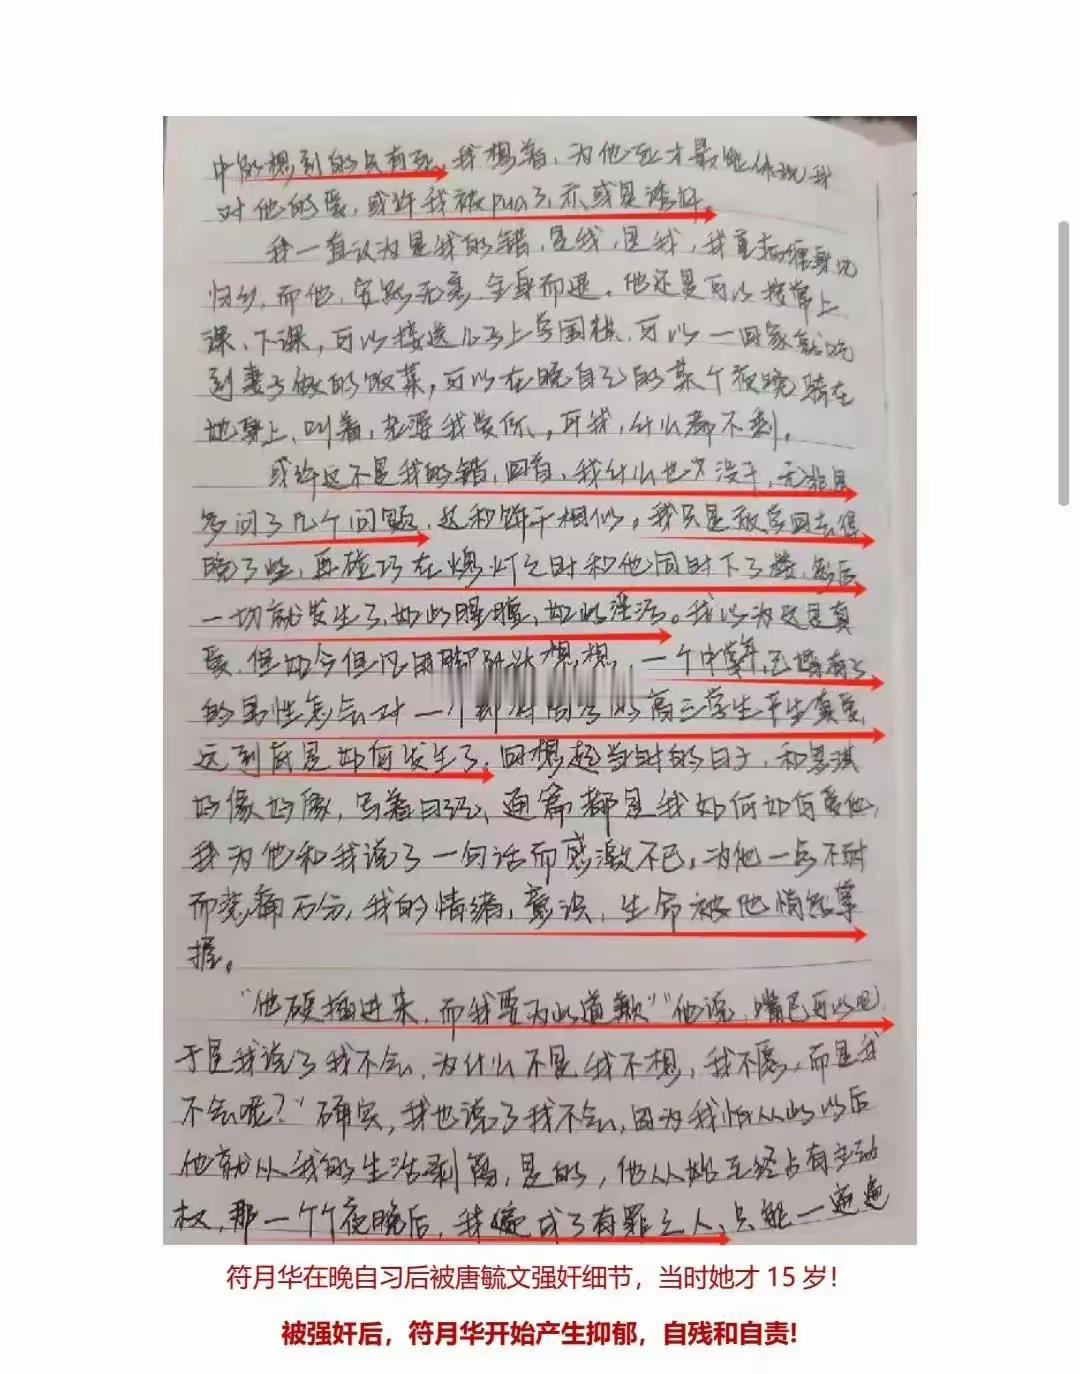 中能想到的只有死，我想着，为他死才最能体现我
对他的爱，或许我被pua了，亦或是诱奸。
我一直认为是我的错，是我，是我，我重病缠身地
归乡，而他，安然无恙，全身而退。他还是可以接常上
课、下课，可以接送儿子上学围棋，可以一回家就吃
到妻子做的饭菜，可以在晚自习的某个夜晚骑在
她身上，叫着，老婆我爱你。而我，什么都不剩。
或许这不是我的错，回首，我什么也没干，无非是
多问了几个问题，这和饼干相似。我只是放学回去得
晚了些，再碰巧在熄灯之时和他同时下了楼，然后
一切就发生了，如此腥膻，如此淫污。我以为这是真
爱，但如今但凡用脚趾头想想，一个中年、已婚有子
的男性怎么会对一个高三学生产生真爱，
这到底是如何发生了，回想起当时的日子，和思淇
好像好像，写着日记，通篇都是我如何如何爱他，
我为他和我说了一句话而感激不已，为他一点不耐
而悲痛万分，我的情绪，意识，生命被他悄然掌
握。
“他硬插进来，而我要为此道歉”“他说，嘴巴可以吧，
于是我说了我不会，为什么不是我不想，我不愿，而是我
不会呢？”确实，我也说了我不会，因为我怕从此以后
他就从我的生活剥离，是的，他从始至终占有主动
权，那一个个夜晚后，我便成了有罪之人，只能一遍遍
符月华在晚自习后被唐毓文强奸细节，当时她才 15 岁！
被强奸后，符月华开始产生抑郁，自残和自责!